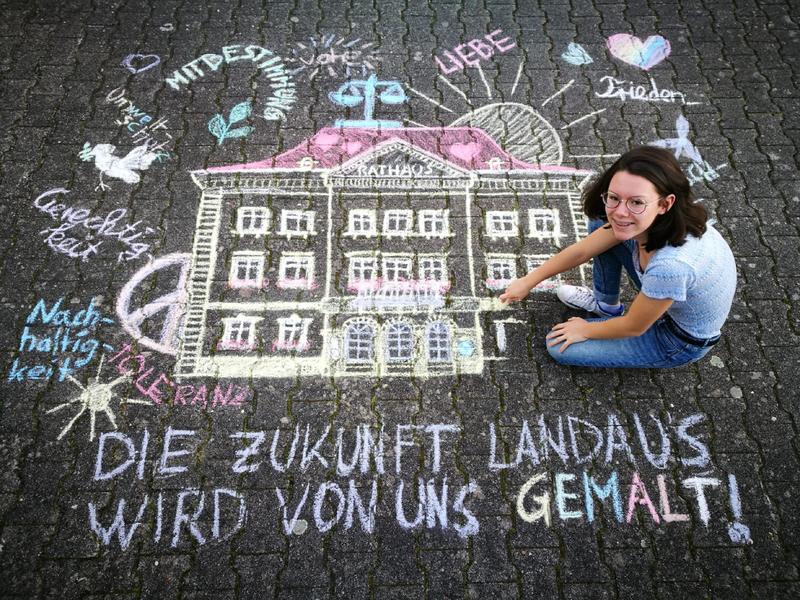 MITBESTIMMUNG
Vote
LIEBE
Frieden
Umwelt-
schutz
RATHAUS
Gerechtig-
keit
Nach-
haltig-
keit
TOLERANZ
DIE ZUKUNFT LANDAUS
WIRD VON UNS GEMALT!